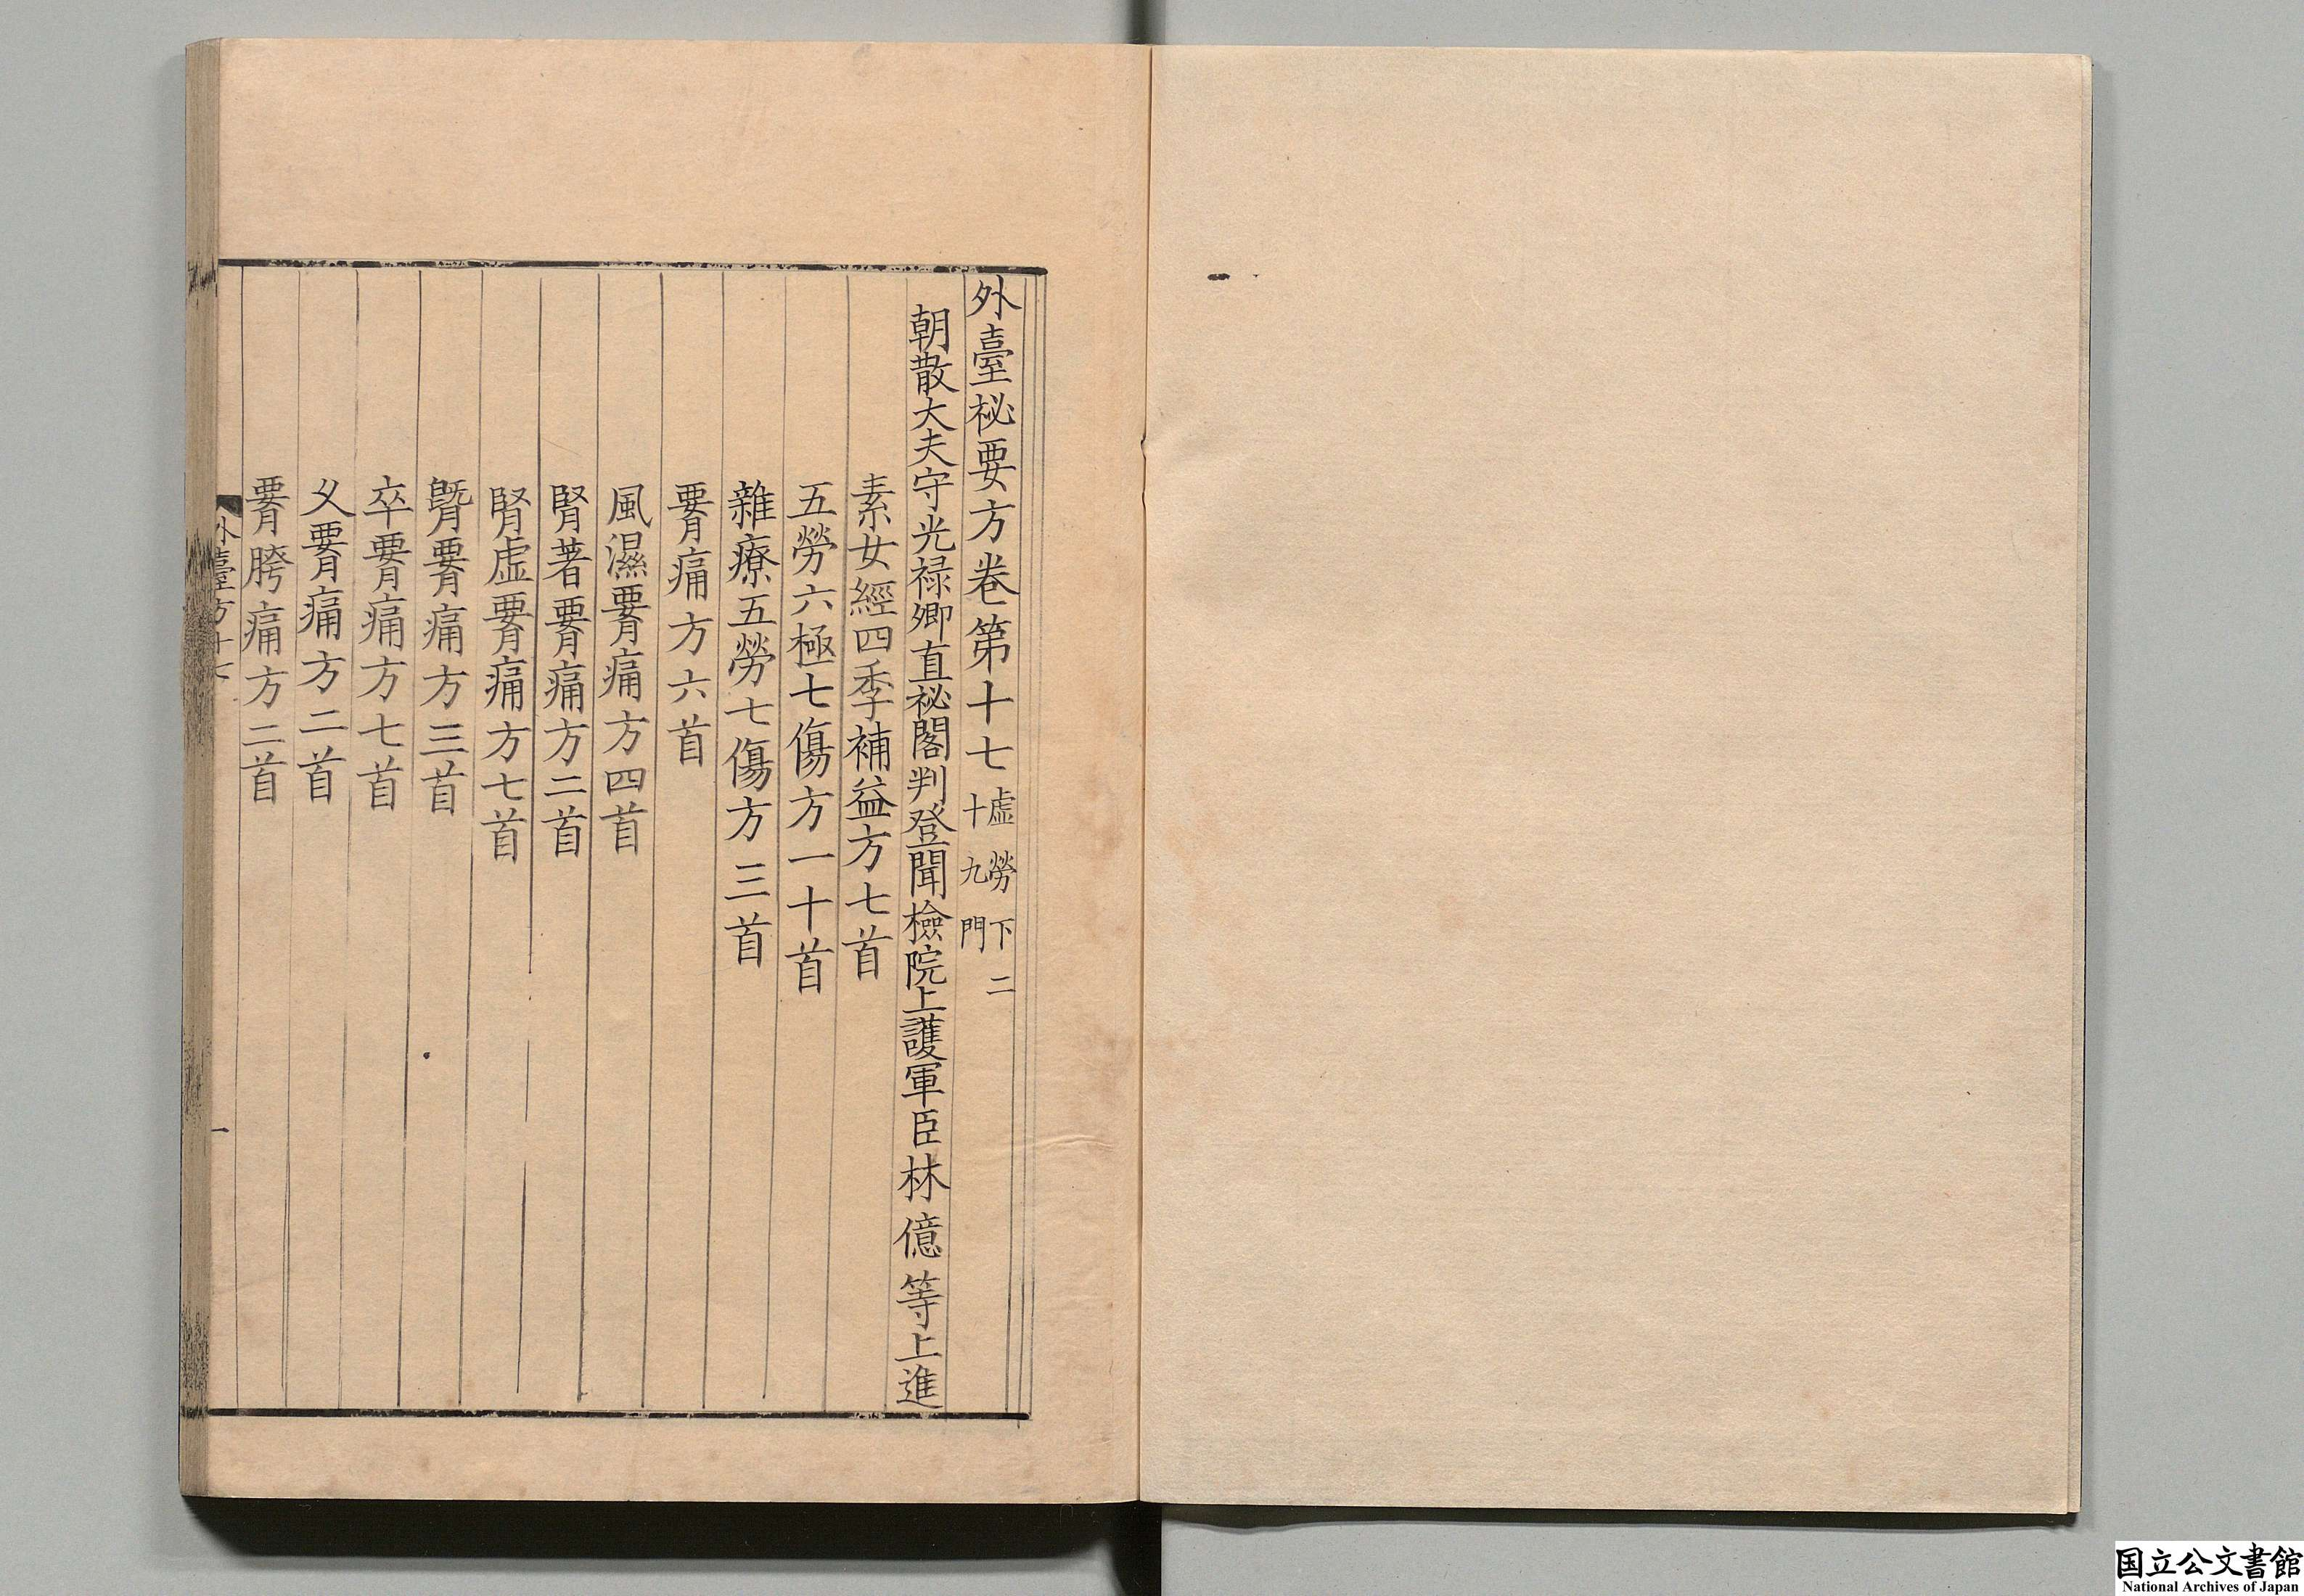 外臺祕要方卷第十七 虛勞下二十九門
朝散大夫守光祿卿直祕閣判登聞檢院上護軍臣林億等上進
素女經四季補益方七首
五勞六極七傷方一十首
雜療五勞七傷方三首
腰痛方六首
風濕腰痛方四首
腎著腰痛方二首
腎虛腰痛方七首
䐴腰痛方三首
卒腰痛方七首
久腰痛方二首
腰胯痛方二首
外臺方十七
一
国立公文書館
National Archives of Japan